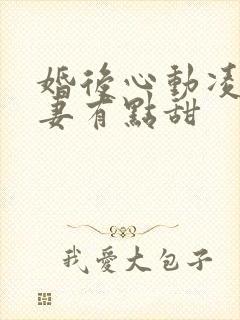 婚後心動凌
妻有點甜
我愛大包子